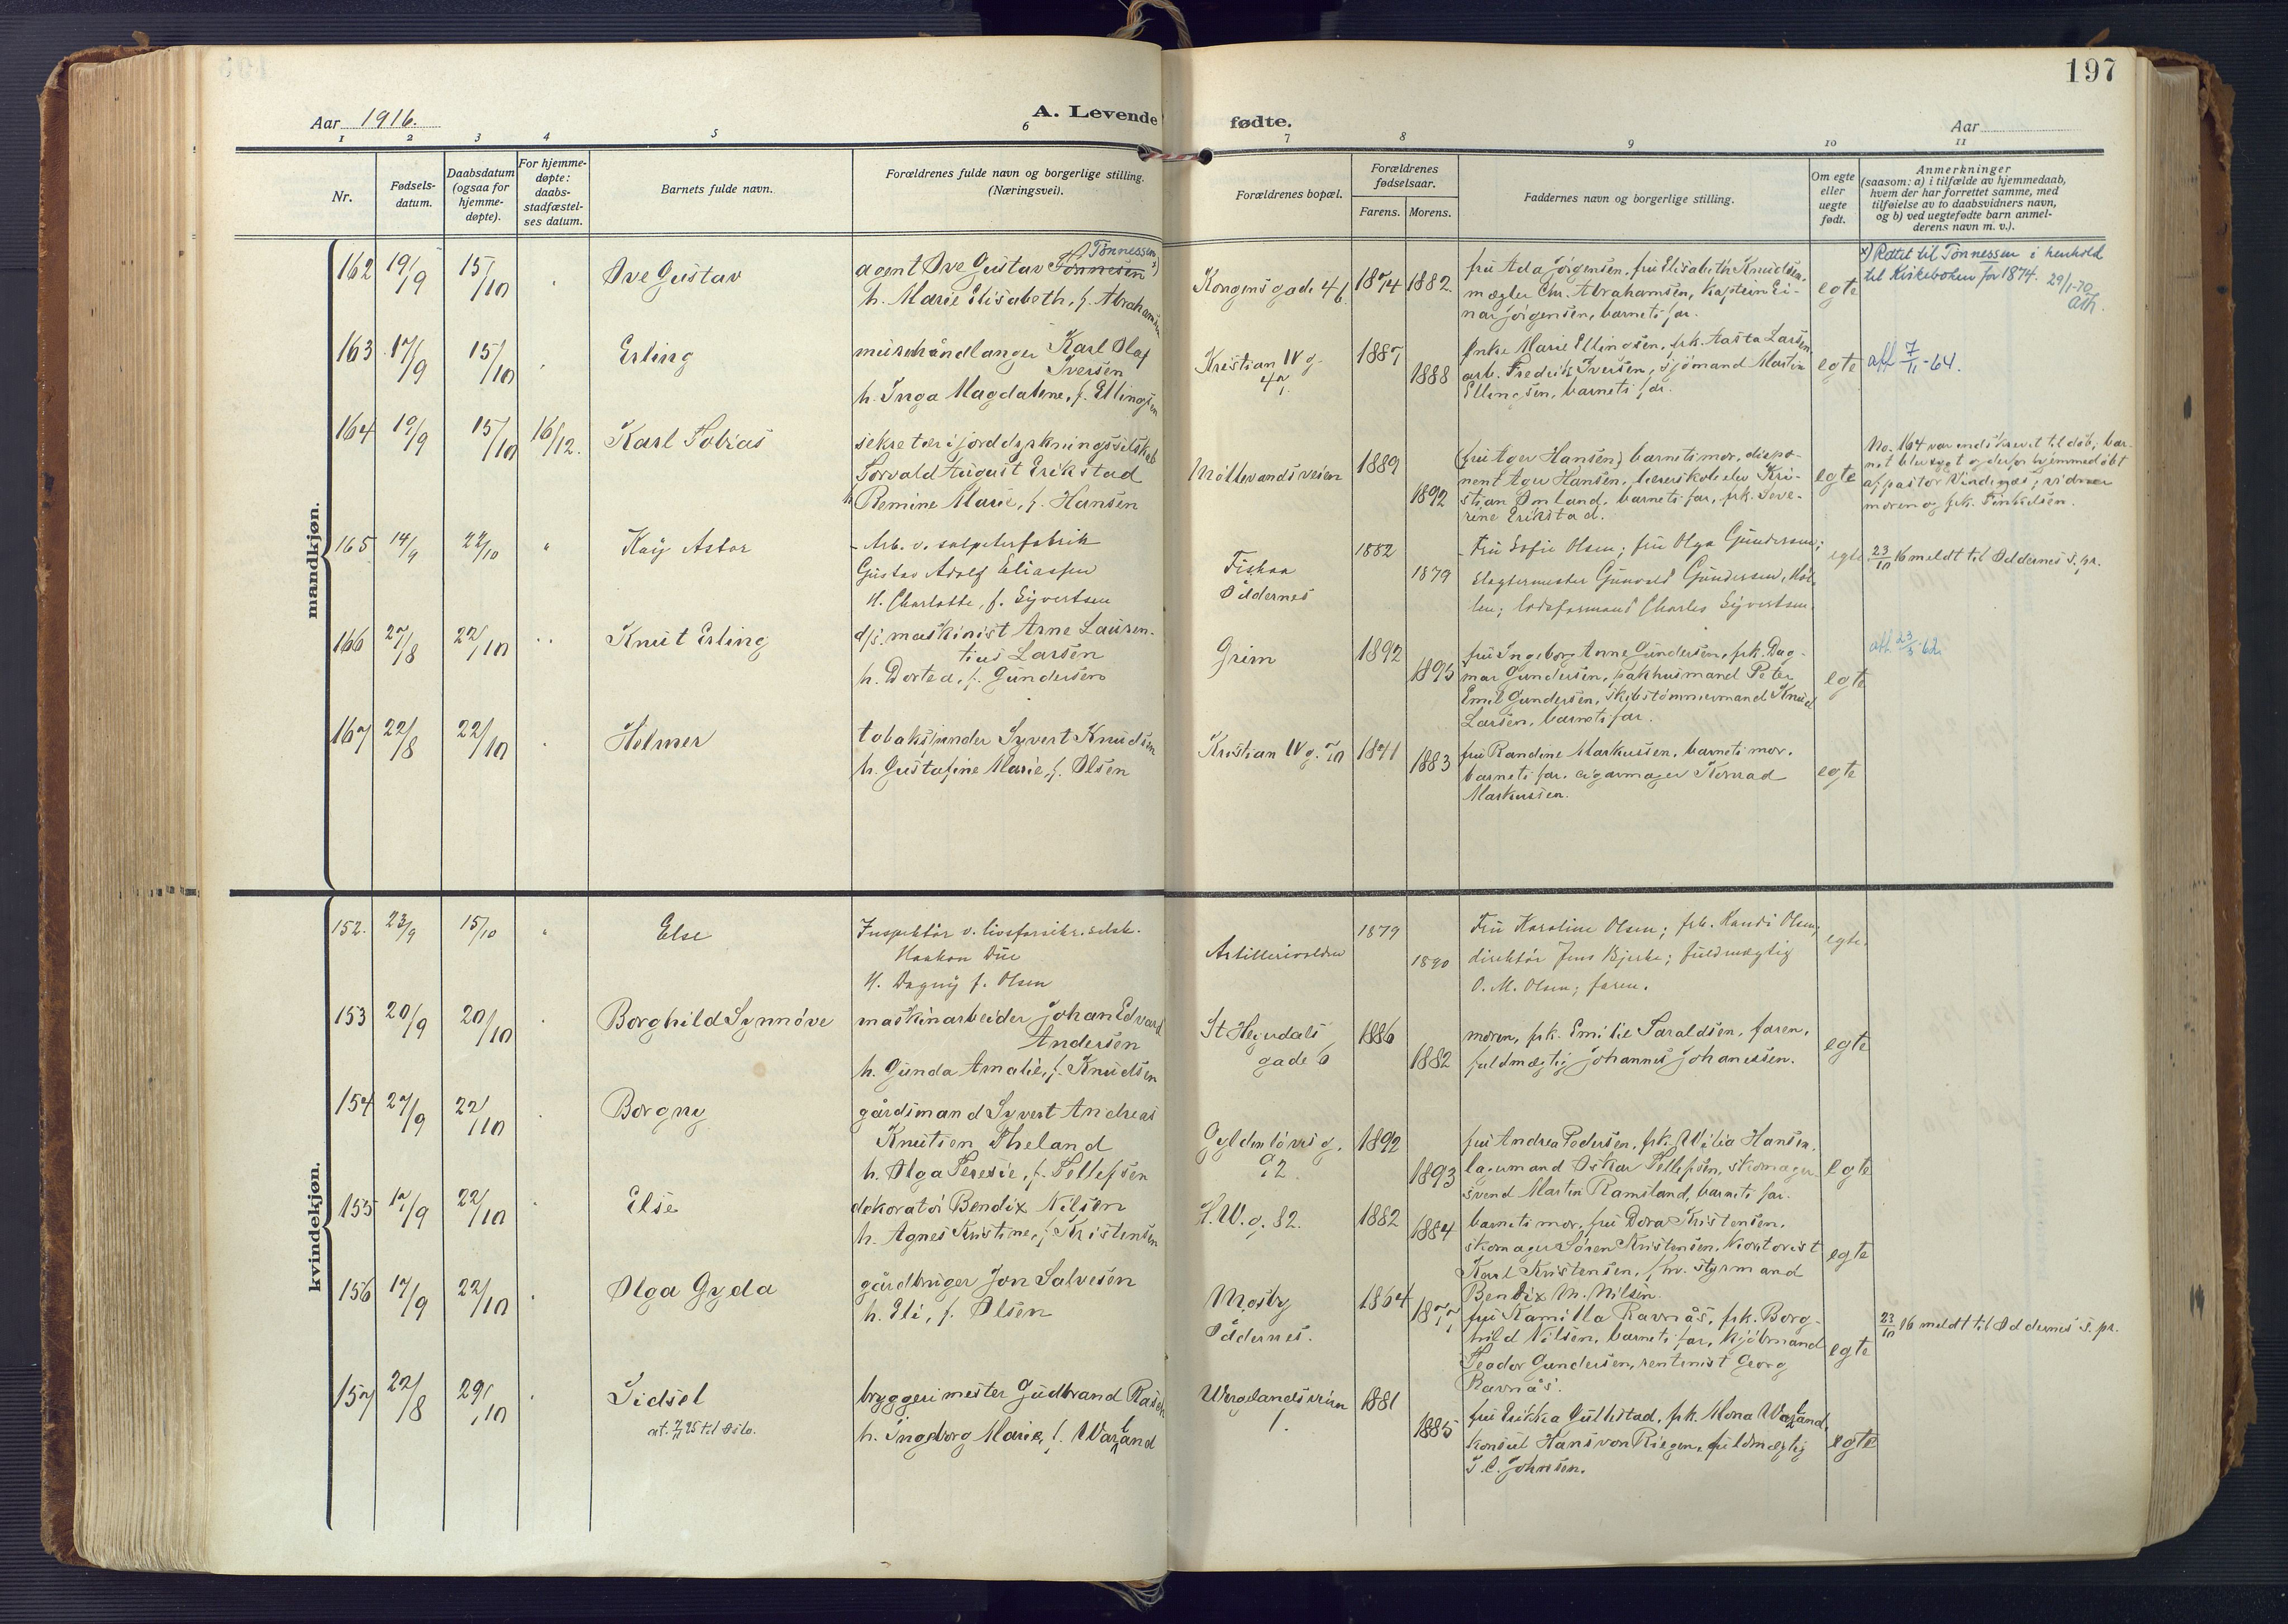 197
Aar 1916.
A. Levende fødte.
Aar
1 2 3 4 5 6 7 8 9 10 11
Nr.
Fødsels-
datum.
Daabsdatum
(ogsaa for
hjemme-
døpte).
For hjemme-
døpte:
daabs-
stadfæstel-
ses datum.
Barnets fulde navn.
Forældrenes fulde navn og borgerlige stilling.
(Næringsvei).
Forældrenes bopæl.
Forældrenes
fødselsaar.
Farens. Morens.
Faddernes navn og borgerlige stilling.
Om egte
eller
uegte
født.
Anmerkninger
(saasom: a) i tilfælde av hjemmedaab,
hvem der har forrettet samme, med
tilføielse av to daabsvidners navn,
og b) ved uegtefødte barn anmel-
derens navn m. v.).
mandkjøn.
162 19/9 15/10 Ove Gustav
Tønnessen x)
agent Ove Gustav Tönnesen
h. Marie Elisabeth, f. Abrahamsen
Kongensgade 4b. 1874 1882.
fru Ada Jörgensen, fru Elisabeth Knudsen,
mægler Chr. Abrahamsen, kaptein Ei-
nar Jörgensen, barnets far.
egte
x) Rettet til Tönnessen i henhold
til Kirkeboken for 1874. 29/1-70
163 17/9 15/10 Erling
murerhåndlanger Karl Olaf
Iversen
h. Inga Magdalene, f. Ellingsen
Kristian IV g.
1887 1888
Enke Marie Ellingsen, frk. Aasta Larsen
arb. Fredrik Iversen, sjömand Martin
Ellingsen, barnets far.
egte
aff 7/11-64.
164 19/9 15/10 16/12. Karl Tobias
sekretær i jorddyrkningsselskab
Torvald August Erikstad
h. Remine Marie, f. Hansen
Möllevandsveien 1889 1892
(fru Ager Hansen) barnets mor, dispo-
nent Ager Hansen, lærerskoleelev Kri-
stian Omland, barnets far, frk. Seve-
rine Erikstad.
egte
No. 164 var indskrevet til dåb; bar-
net blev sygt og derfor hjemmedöbt
af pastor Vindenes; vidner
moren og frk. Tinkelsen.
165 14/9 22/10 " Kay Astor
- Arb. v. salpeterfabrik
Gustav Adolf Eliassen
H. Charlotte, f. Syvertsen
Fiskaa
Oddernes
1882 1879
- Fru Sofie Olsen; fru Olga Gundersen;
Slagtermester Gunvald Gundersen,
lodsformand Charles Syvertsen.
egte
23/10 16 meldt til Oddernes s. pr.
166 27/8 22/10 " Knut Erling
d/s. maskinist Arne Lauren-
tius Larsen
h. Dortea, f. Gundersen
Grim 1892 1895
fru Ingeborg Anne Gundersen, frk. Dag-
mar Gundersen, pakhusmand Peter
Emil Gundersen, skibstömmermand Knud
Larsen, barnets far.
egte
aff 23/3-62.
167 22/8 22/10 Helmer
tobakspinder Syvert Knudsen
h. Gustafine Marie, f. Olsen
Kristian IV g. 70 1841 1883
fru Randine Markussen, barnets mor.
barnets far. cigarmager Konrad
Markussen.
egte
kvindekjøn.
152. 23/9 15/10 " Else
Inspektör v. livsforsikr. selsk.
Haakon Due
H. Dagny f. Olsen
Artillerivolden 1879 1890
Fru Karoline Olsen; frk. Randi Olsen;
direktör Jens Bjerke; fuldmægtig
O. M. Olsen; faren.
egte.
153 20/9 20/10 Borghild Synnöve
maskinarbeider Johan Edvard
Andersen
h. Gunda Amalie, f. Knudsen
St Hejrdals
gade 6
1886 1882
moren, frk. Emilie Taraldsen, faren,
fuldmægtig Johannes Johanessen.
egte
154 27/9 22/10 Borgny
gårdsmand Syvert Andreas
Knutsen Theland
h. Olga Teresie, f. Tellefsen
Gyldenlöves g.
92
1892 1893
fru Andrea Pedersen, frk. Vilia Hansen,
lagermand Oskar Tellefsen, skomager-
svend Martin Ramsland, barnets far.
egte
155 17/9 22/10 Else
dekoratör Bendix Nilsen
h. Agnes Kristine, f. Kristensen
H.W.g. 82. 1882 1884
barnets mor, fru Dora Kristensen,
skomager Sören Kristensen, kontorist
Karl Kristensen, fhv. styrmand
Bendix M. Nilsen.
egte
156 17/9 22/10 Olga Gyda
gårdbruger Jon Salvesen
h. Eli, f. Olsen
Mosby
Oddernes.
1864 1877
fru Kamilla Ravnås, frk. Borg-
hild Nilsen, barnets far, kjöbmand
Teodor Gundersen, rentenist Georg
Ravnås.
egte
23/10 16 meldt til Oddernes s. pr.
157 22/8 29/10 Sidsel
til Oslo.
bryggerimester Gudbrand Rasch
h. Ingeborg Marie, f. Warland
Wergelandsveien
1.
1881 1885
fru Erikka Gulhstad, frk. Mona Warland,
konsul Hans von Riegen, fuldmægtig
T. C. Johnsen.
egte